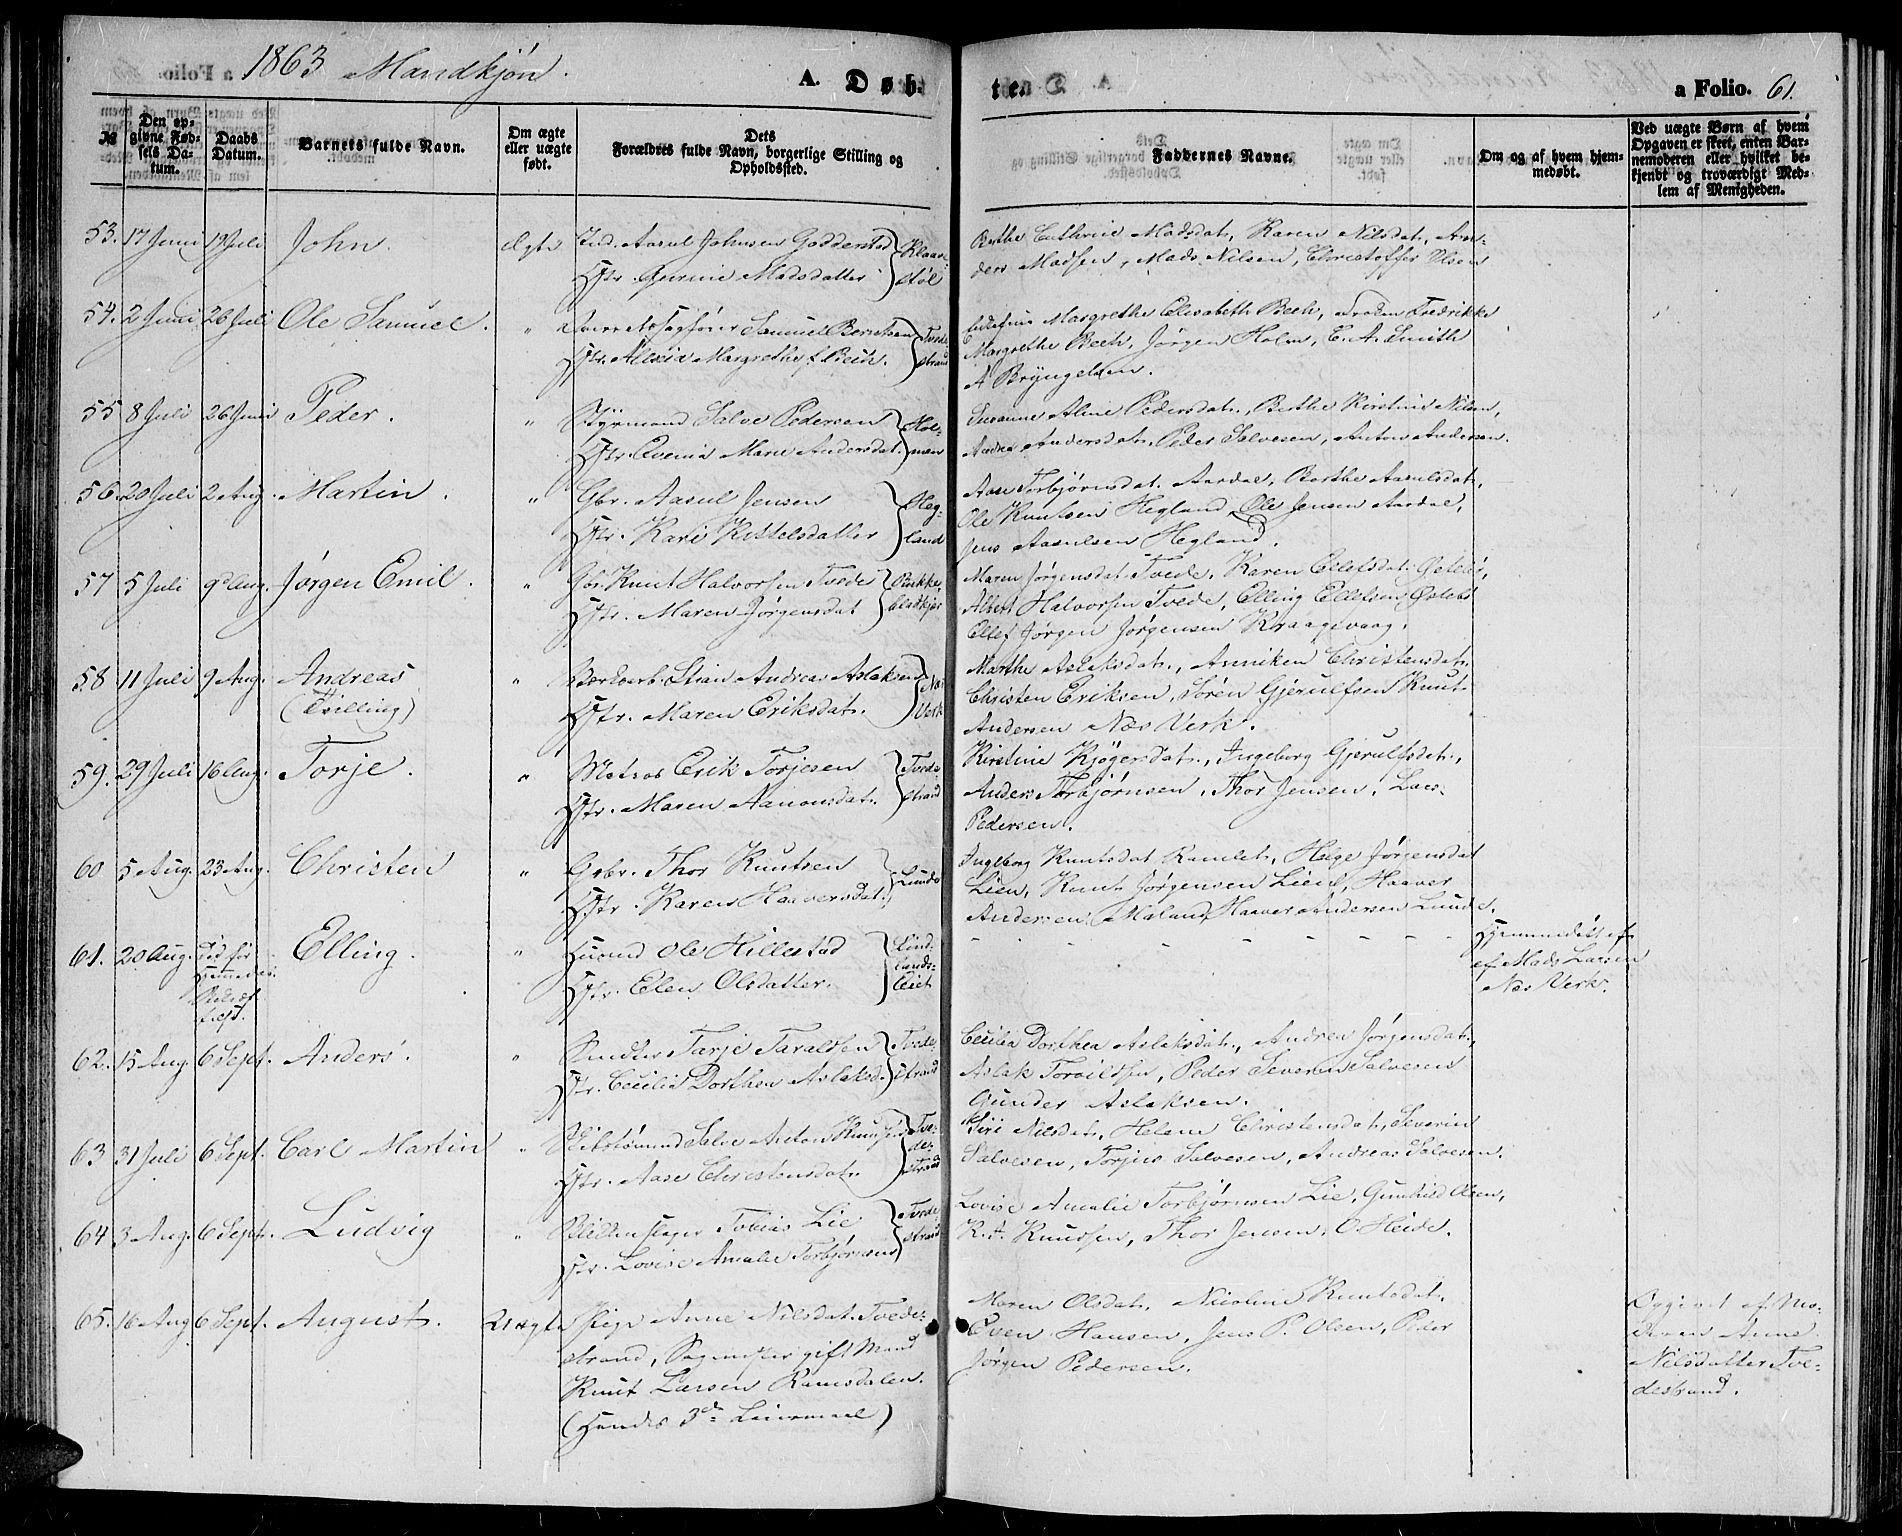 1863 Mandkjøn.
A. Døb-
te.
a Folio. 61.
№
Den op-
givne Fød-
sels Da-
tum.
Daabs
Datum.
Barnets fulde Navn.
Om ægte
eller uægte
født.
Dets
Forældres fulde Navn, borgerlige Stilling og
Opholdssted.
Faddernes Navne.
Om og af hvem hjem-
medøbt.
Ved uægte Børn af hvem
Opgaven er skeet, enten Bar-
nemoderen eller hvilket be-
kjendt og troværdigt Med-
lem af Menigheden.
53. 17 Juni 19 Juli John. Ægte Ind. Aasul Johnsen Godderstad
Hstr. Gurine Madsdatter
Klaa-
støl
Berthe Cathrine Madsdat., Karen Nilsdat., An-
ders Madsen, Mads Nilsen, Christoffer Olsen
54. 2 Juni 26 Juli Ole Samuel. " Overretssagfører Samuel Berntsen
Hstr. Alexia Margrethe f. Bech.
Tvede-
strand
Margrethe Elisabeth Bech, Frøken Fredrikke
Margrethe Bech, Jørgen Holm, C. A. Smith
A Bryngelsen.
55 8 Juli 26 Juni Peder. " Styrmand Salve Pedersen
Hstr. Evenia Marie Andersdat.
Hol-
men
Susanne Aline Pedersdat., Berthe Kirstine Nilsen,
Andrea Andersdat., Peder Salvesen, Anton Andersen.
56. 20 Juli 2 Aug. Martin. " Gbr. Aasul Jensen
Hstr. Kari Kittelsdatter
Heg-
land
Aase Torbjørnsdat. Aardal, Berthe Aasulsdat.,
Ole Knutsen Hegland, Ole Jensen Aardal,
Jens Aasulsen Hegland.
57 5 Juli 9d Aug. Jørgen Emil. " Gbr. Knut Halvorsen Tvede
Hstr. Maren Jørgensdat
Bukke-
bladkjær
Maren Jørgensdat. Tvede, Karen Ellefsdat. Østebø,
Albert Halvorsen Tvede, Elling Ellefsen Østebø
Ellef Jørgen Jørgensen Kraagevaag.
58 11 Juli 9 Aug. Andreas
(Tvilling)
" Værksarb. Stian Andreas Aslaksen
Hstr. Maren Eriksdat.
Næs
Verk
Marthe Aslaksdat., Anniken Christensdat.
Christen Eriksen, Søren Gjerulfsen Knut
Andersen Næs Verk.
59. 29 Juli 16 Aug. Torje. " Matros Erik Torjesen
Hstr. Maren Aanonsdat.
Tvede
strand
Kirstine Kjøgersdat., Ingeborg Gjerulfsdat.,
Anders Torbjørnsen, Thor Jensen, Lars
Pedersen.
60 5 Aug. 23 Aug. Christen " Gsbr. Thor Knutsen
Hstr. Karen Haaversdat.
Lunde
Ingeborg Knutsdat Ramlet, Helge Jørgensdat
Lien, Knut Jørgensen Lien, Haaver
Andersen Maland, Haaver Andersen Lunde.
61. 20 Aug. Død før
Elling. " Husmd Ole Hillestad
Hstr. Elen Olsdatter.
Lind-
lands-
leiet
Hjemmedøbt af
af Mads Larsen
Næs Verk.
62. 15 Aug. 6 Sept. Anders. " Smedter Tarje Taraldsen
Hstr. Cecilie Dorthea Aslaksd.
Tvede
strand
Cecilia Dorthea Aslaksdat., Andrea Jørgensdat.,
Aslak Torvildsen, Peder Severin Salvesen
Gunder Aslaksen.
63 31 Juli 6 Sept. Carl Martin " Skibstømmd Salve Anton Knudsen
Hstr. Aase Christensdat.
Tve-
de-
strand
Siri Nilsdat., Helene Christensdat., Severin
Salvesen, Torjus Salvesen, Andreas Salvesen.
64 3 Aug. 6 Sept. Ludvig " Blikkenslager Tobias Lie
Hstr. Lovise Amalie Torbjørnsen
Tvede
strand
Lovise Amalie Torbjørnsen Lie, Gunhild Olsen,
K. A. Knudsen, Thor Jensen, O. Heide.
65. 16 Aug 6 Sept. August. Uægte Pige Anne Nilsdat. Tvede-
strand, Sagmester gift Mand
Knut Larsen Ramsdalen.
(Hendes 3de Leiermaal)
Maren Olsdat., Nicoline Knutsdat.
Even Hansen, Jens P. Olsen, Peder
Jørgen Pedersen.
Opgivet af Mo-
deren Anne
Nilsdatter Tve-
destrand.